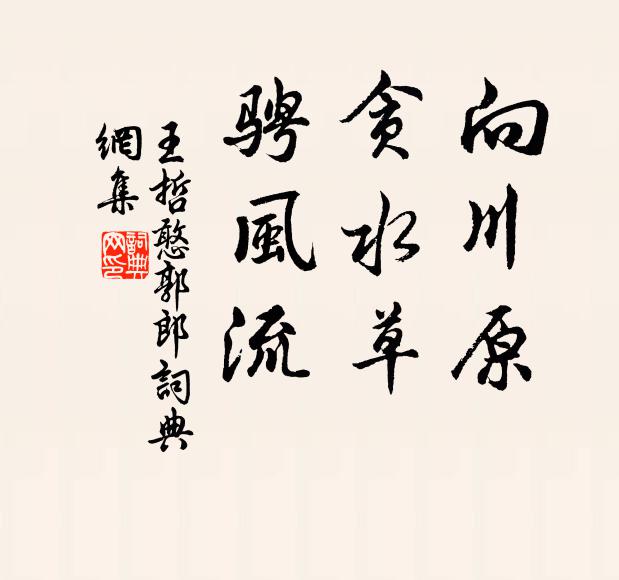 向川原
貪水草
騁風流
王哲憨郭郎詞典
網集
詞典
网印